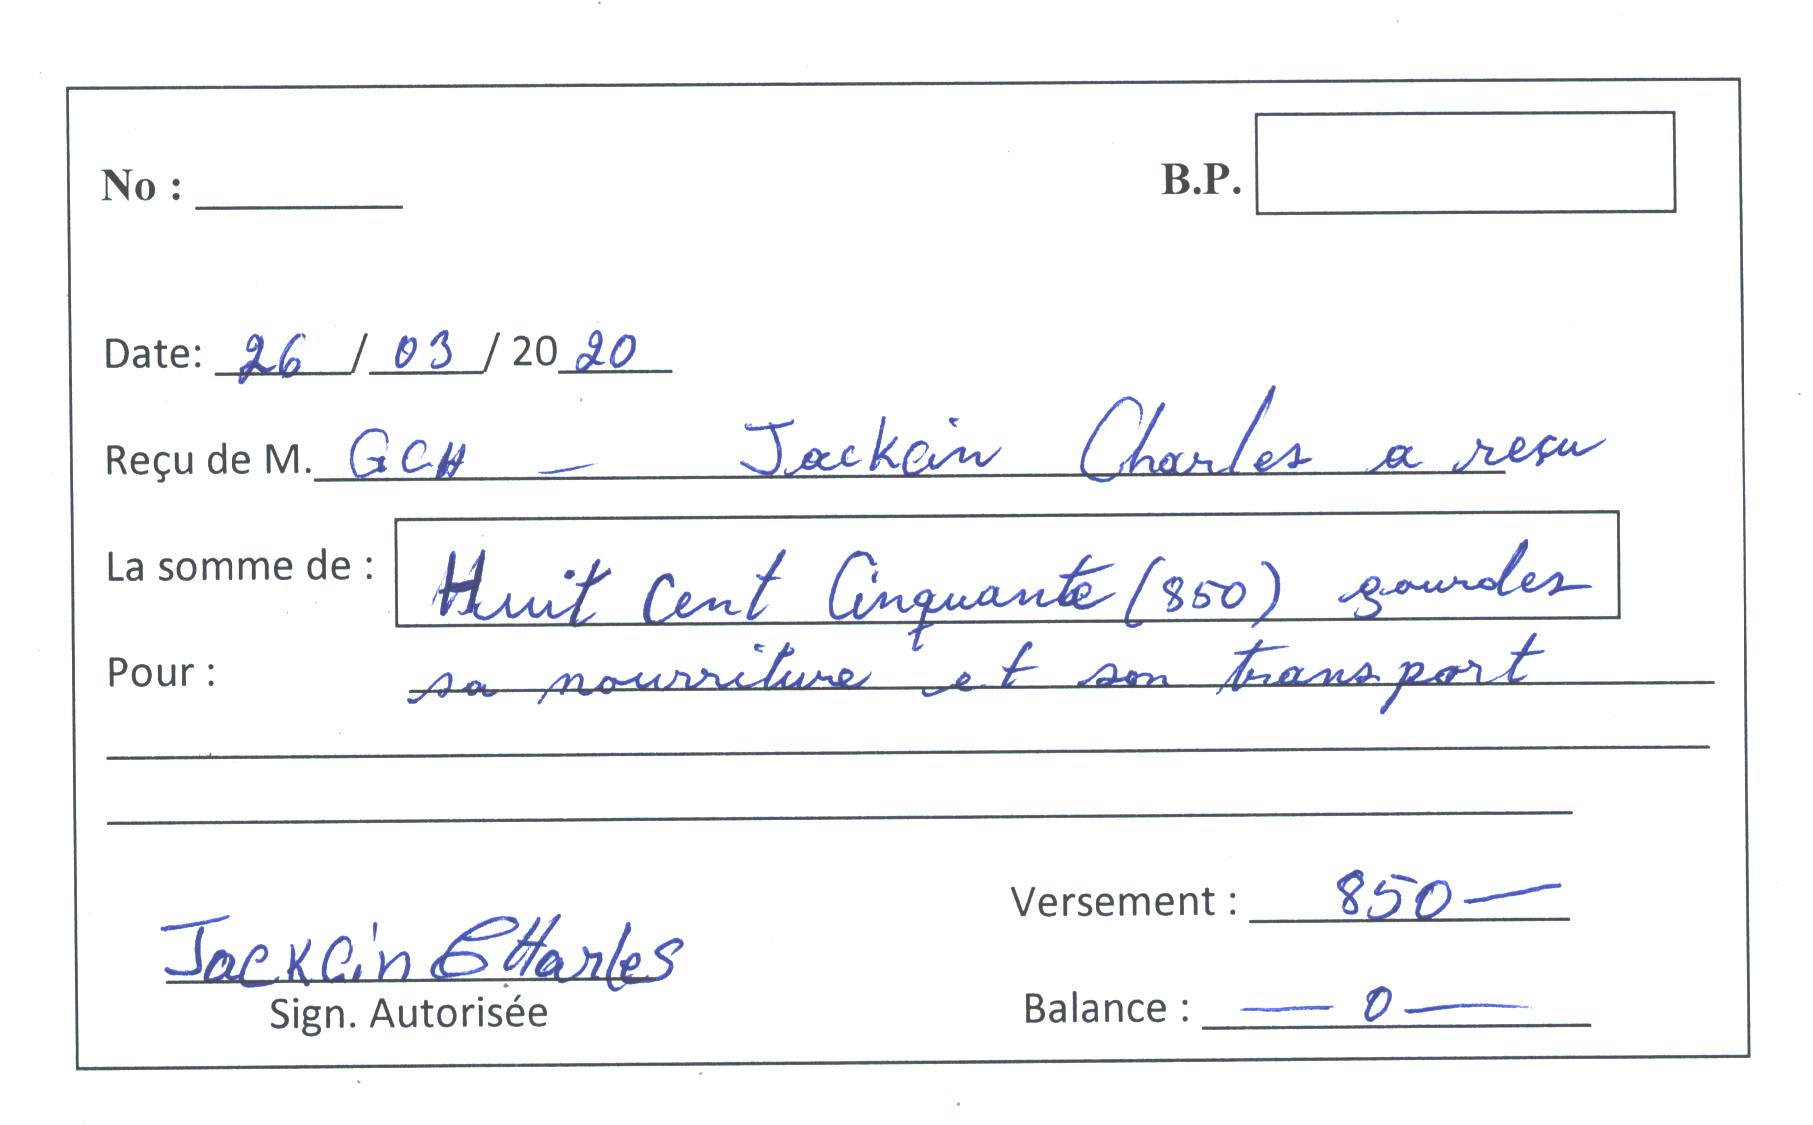 No : B.P.
Date: 26 / 03 / 20 20
Reçu de M. GCH — Jackcin Charles a reçu
La somme de : Huit Cent Cinquante (850) gourdes
Pour : sa nourriture et son transport
Versement : 850 —
Jackcin CHarles
Sign. Autorisée
Balance : — 0 —